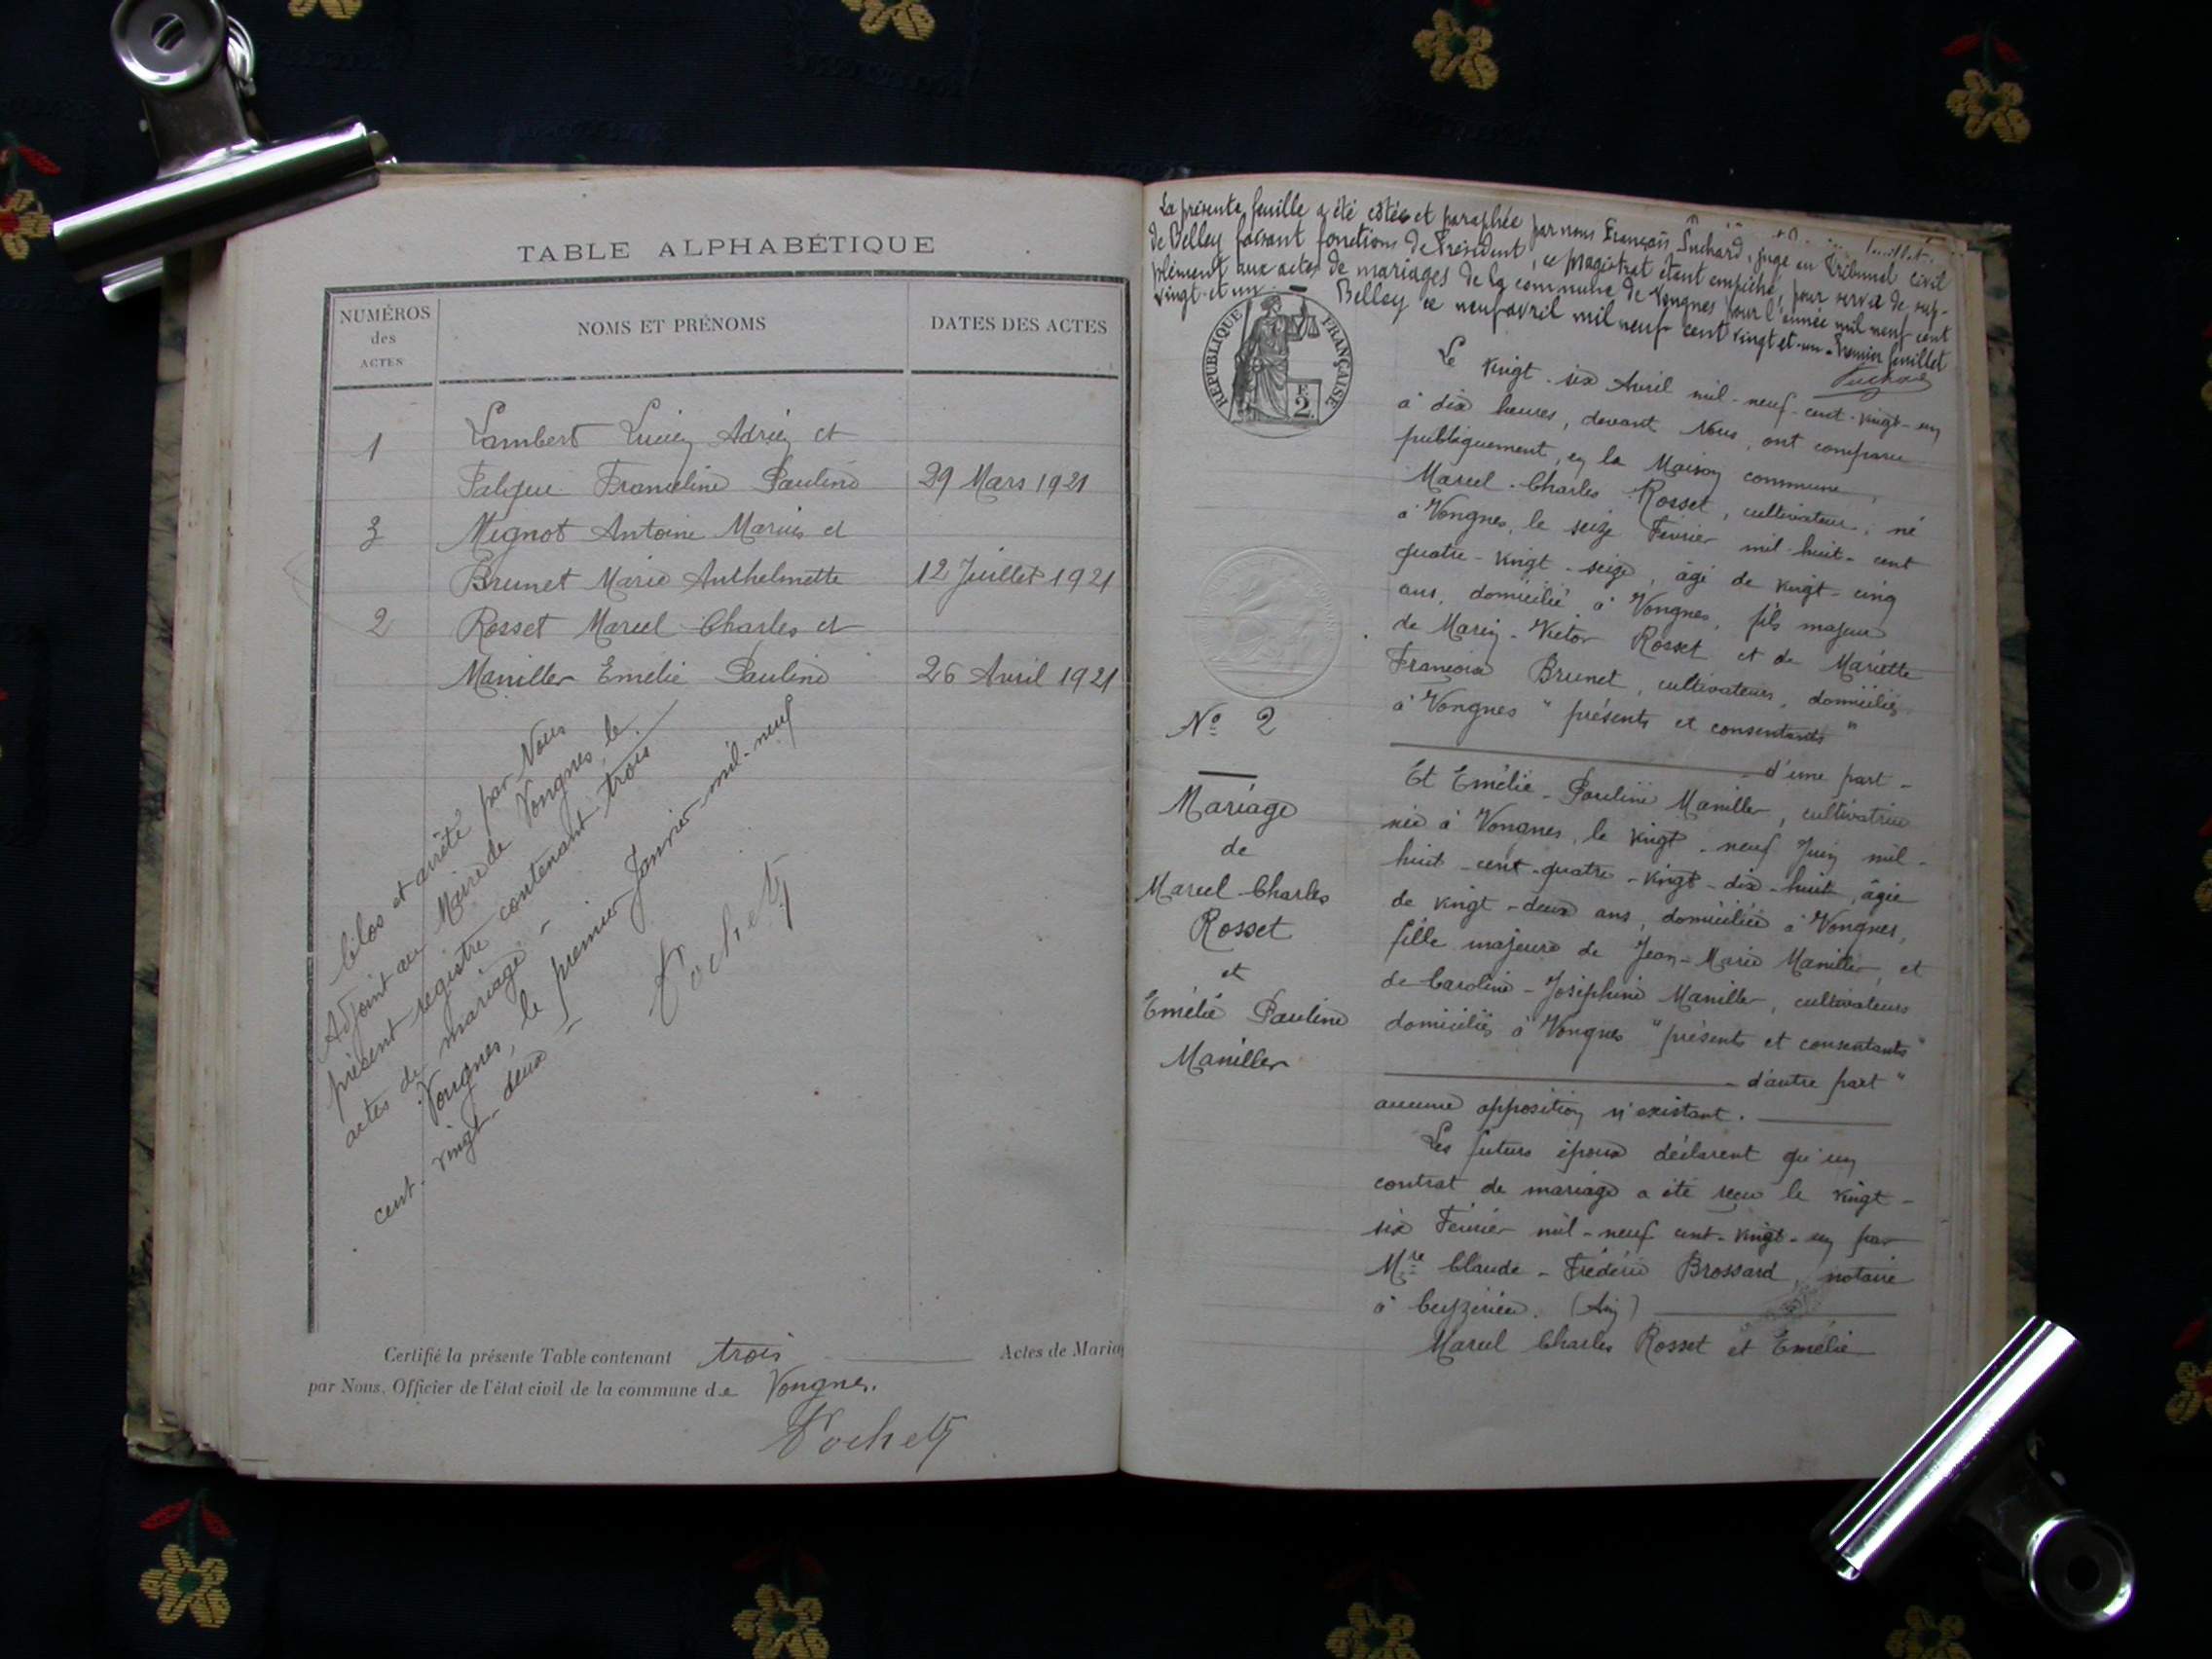 TABLE ALPHABÉTIQUE
NUMÉROS
des
ACTES
NOMS ET PRÉNOMS
DATES DES ACTES
1 Lambert Lucien Adrien et
Franceline Pauline 29 Mars 1921
3 Mignot Antoine Marius et
Brunet Marie Anthelmette 12 Juillet 1921
2 Rosset Marcel Charles et
Maniller Emélie Pauline 26 Avril 1921
Clos et arrêté par Nous
Adjoint au Maire de Vongnes, le
présent registre contenant trois
actes de mariage -
Vongnes, le premier Janvier mil-neuf
cent-vingt-deux
Pochet
Certifié la présente Table contenant trois Actes de Maria
par Nous, Officier de l'état civil de la commune de Vongnes.
Pochet
La présente feuille a été cotée et paraphée par nous François Puchard, juge au Tribunal civil
de Belley faisant fonctions de Président, ce magistrat étant empêché, pour servir de sup-
plément aux actes de mariages de la commune de Vongnes pour l'année mil neuf cent
vingt-et-un. - Belley ce neuf avril mil neuf cent vingt et-un - Premier feuillet
Puchard
RÉPUBLIQUE FRANÇAISE
F.
2
Le vingt-six Avril mil-neuf-cent-vingt-un
à dix heures, devant Nous, ont comparu
publiquement, en la Maison commune,
Marcel-Charles Rosset, cultivateur, né
à Vongnes, le seize Février mil-huit-cent
quatre-vingt-seize, âgé de vingt-cinq
ans, domicilié à Vongnes, fils majeur
de Marin-Victor Rosset et de Mariette
Françoise Brunet, cultivateurs, domiciliés
à Vongnes "présents et consentants"
d'une part -
Et Emélie-Pauline Maniller, cultivatrice
née à Vongnes, le vingt-neuf Juin mil-
huit-cent-quatre-vingt-dix-huit, âgée
de vingt-deux ans, domiciliée à Vongnes,
fille majeure de Jean-Marie Maniller, et
de Caroline-Joséphine Maniller, cultivateurs
domiciliés à Vongnes "présents et consentants"
d'autre part "
aucune opposition n'existant.
Les futurs époux déclarent qu'un
contrat de mariage a été reçu le vingt-
six Février mil-neuf cent-vingt-un par
Mre Claude-Frédéric Brossard, notaire
à Ceyzérieu. (Ain)
Marcel Charles Rosset et Emélie
No 2
Mariage
de
Marcel-Charles
Rosset
et
Emélie Pauline
Maniller